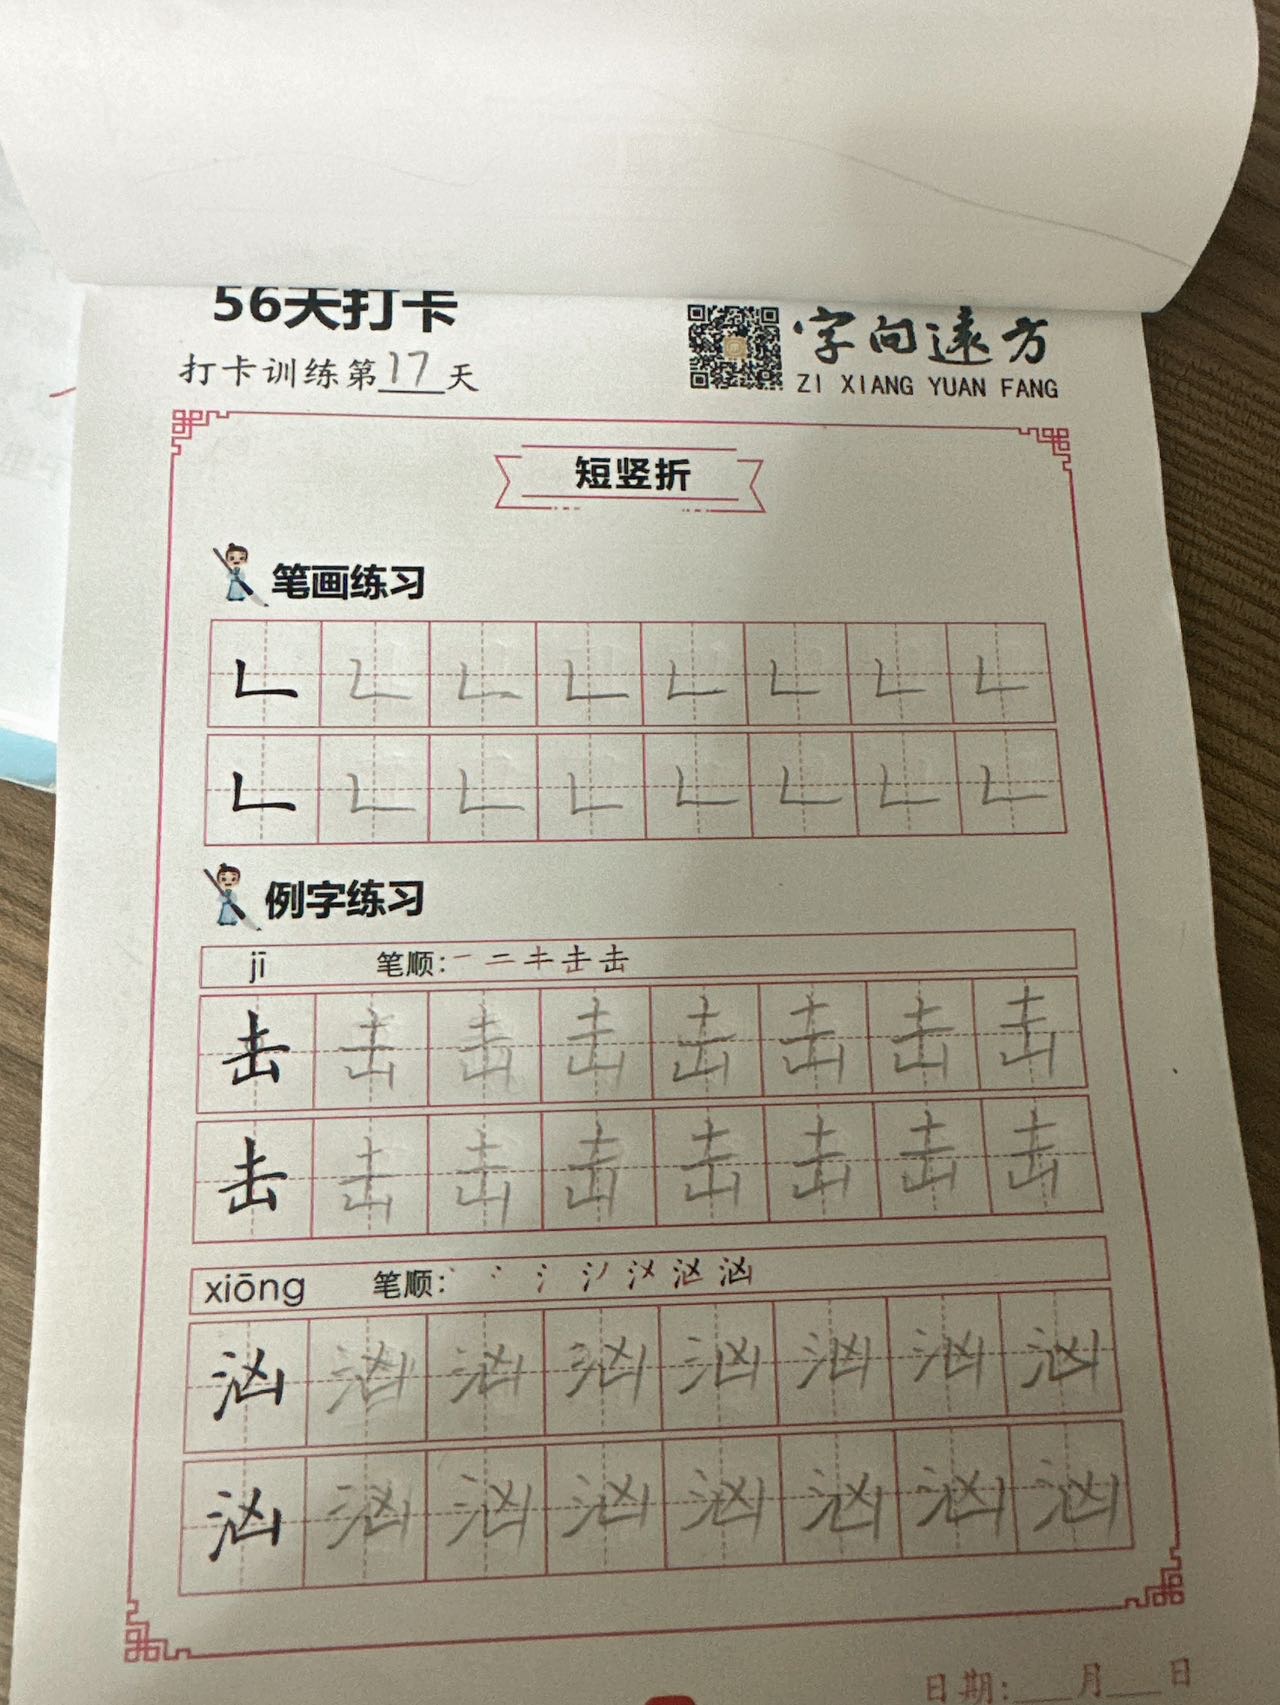 56天打卡
字向远方
打卡训练第17天
ZI XIANG YUAN FANG
短竖折
笔画练习
𠃊 𠃊 𠃊 𠃊 𠃊 𠃊 𠃊 𠃊
𠃊 𠃊 𠃊 𠃊 𠃊 𠃊 𠃊 𠃊
例字练习
jī 笔顺:
击 击 击 击 击 击 击 击
击 击 击 击 击 击 击 击
xiōng 笔顺:
汹 汹 汹 汹 汹 汹 汹 汹
汹 汹 汹 汹 汹 汹 汹 汹
日期:___月___日